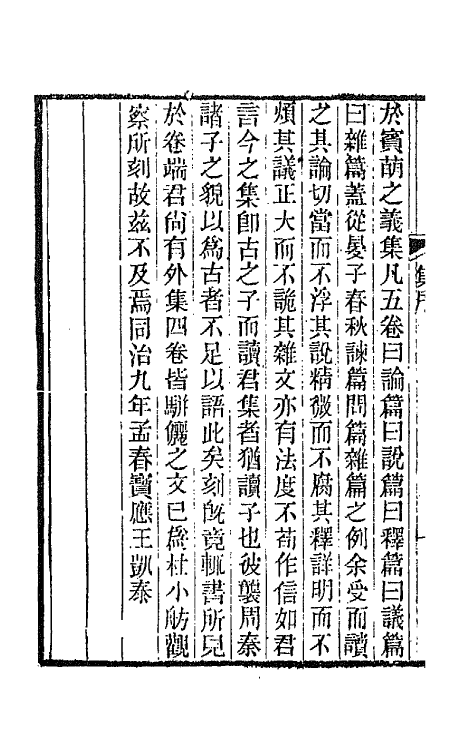 於賓萌之義集凡五卷曰論篇曰說篇曰釋篇曰議篇
曰雜篇蓋從晏子春秋諫篇問篇雜篇之例余受而讀
之其論切當而不浮其說精微而不腐其釋詳明而不
煩其議正大而不詭其雜文亦有法度不苟作信如君
言今之集卽古之子而讀君集者猶讀子也彼襲周秦
諸子之貌以爲古者不足以語此矣刻旣竟輒書所見
於卷端君尙有外集四卷皆駢儷之文已爲杜小舫觀
察所刻故茲不及焉同治九年孟春寶應王凱泰